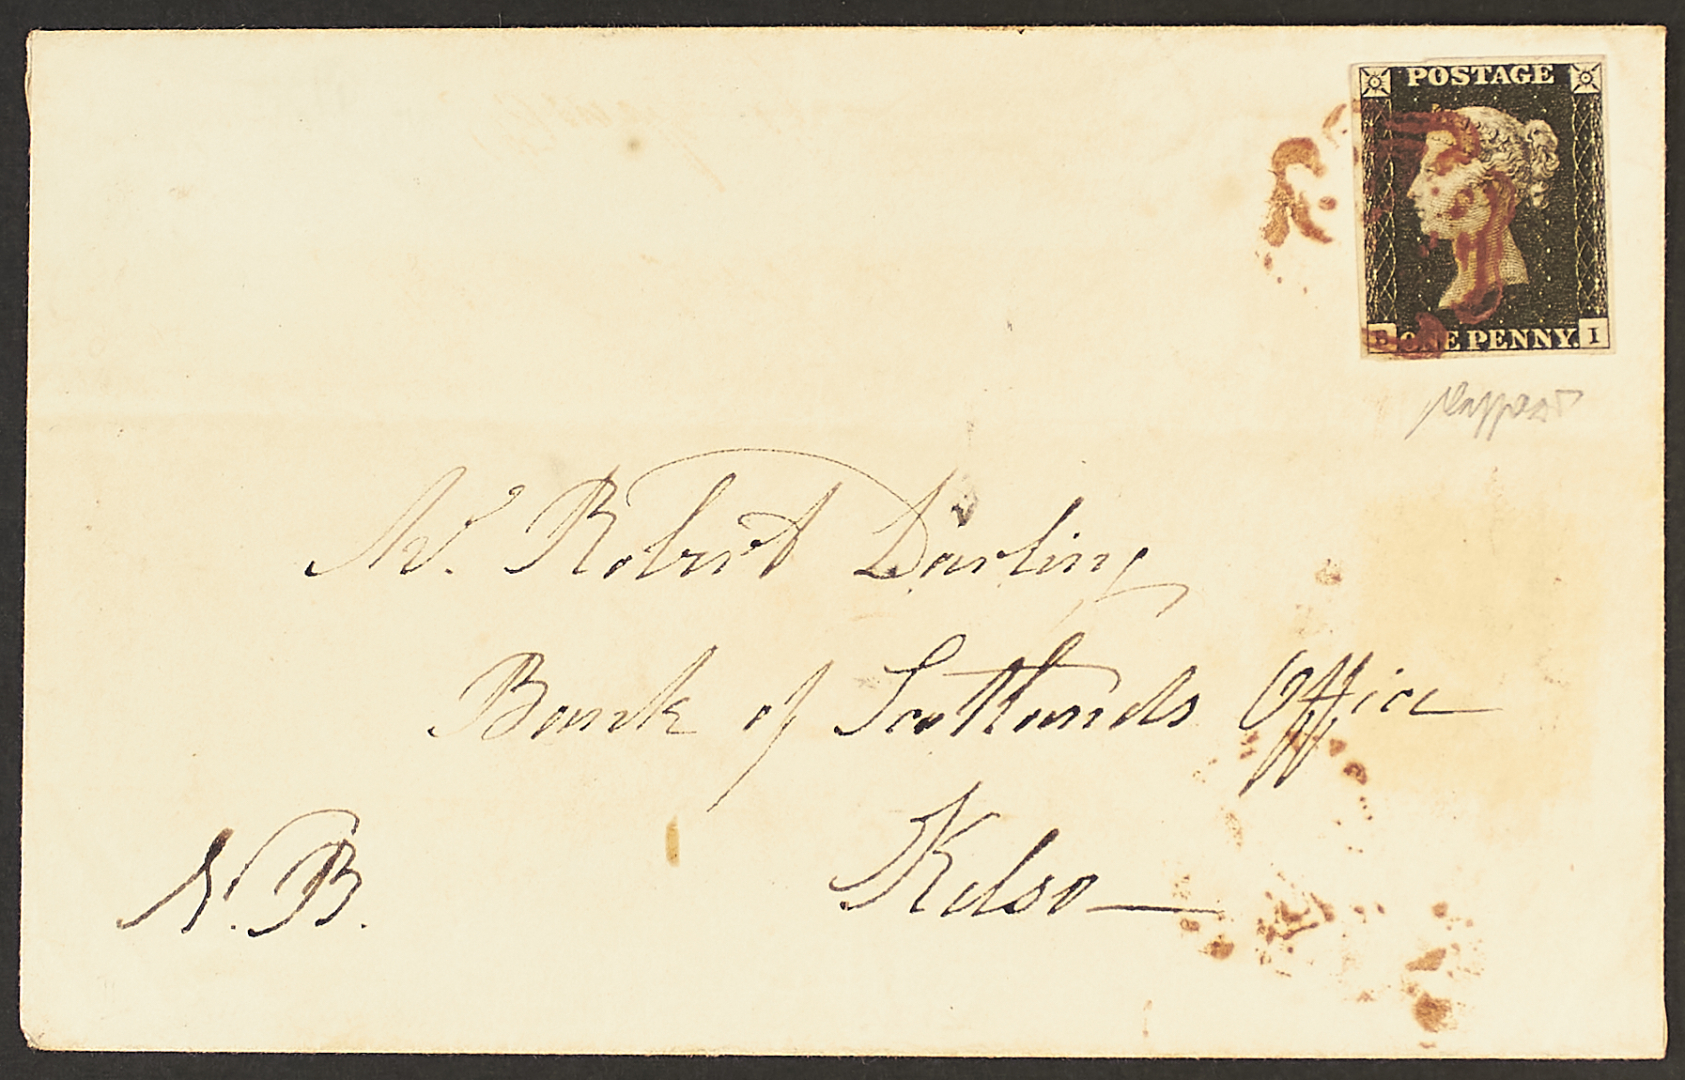 POSTAGE
B ONE PENNY. I
Mr. Robert Darling
Bank of Scotlands Office
Kelso
N.B.